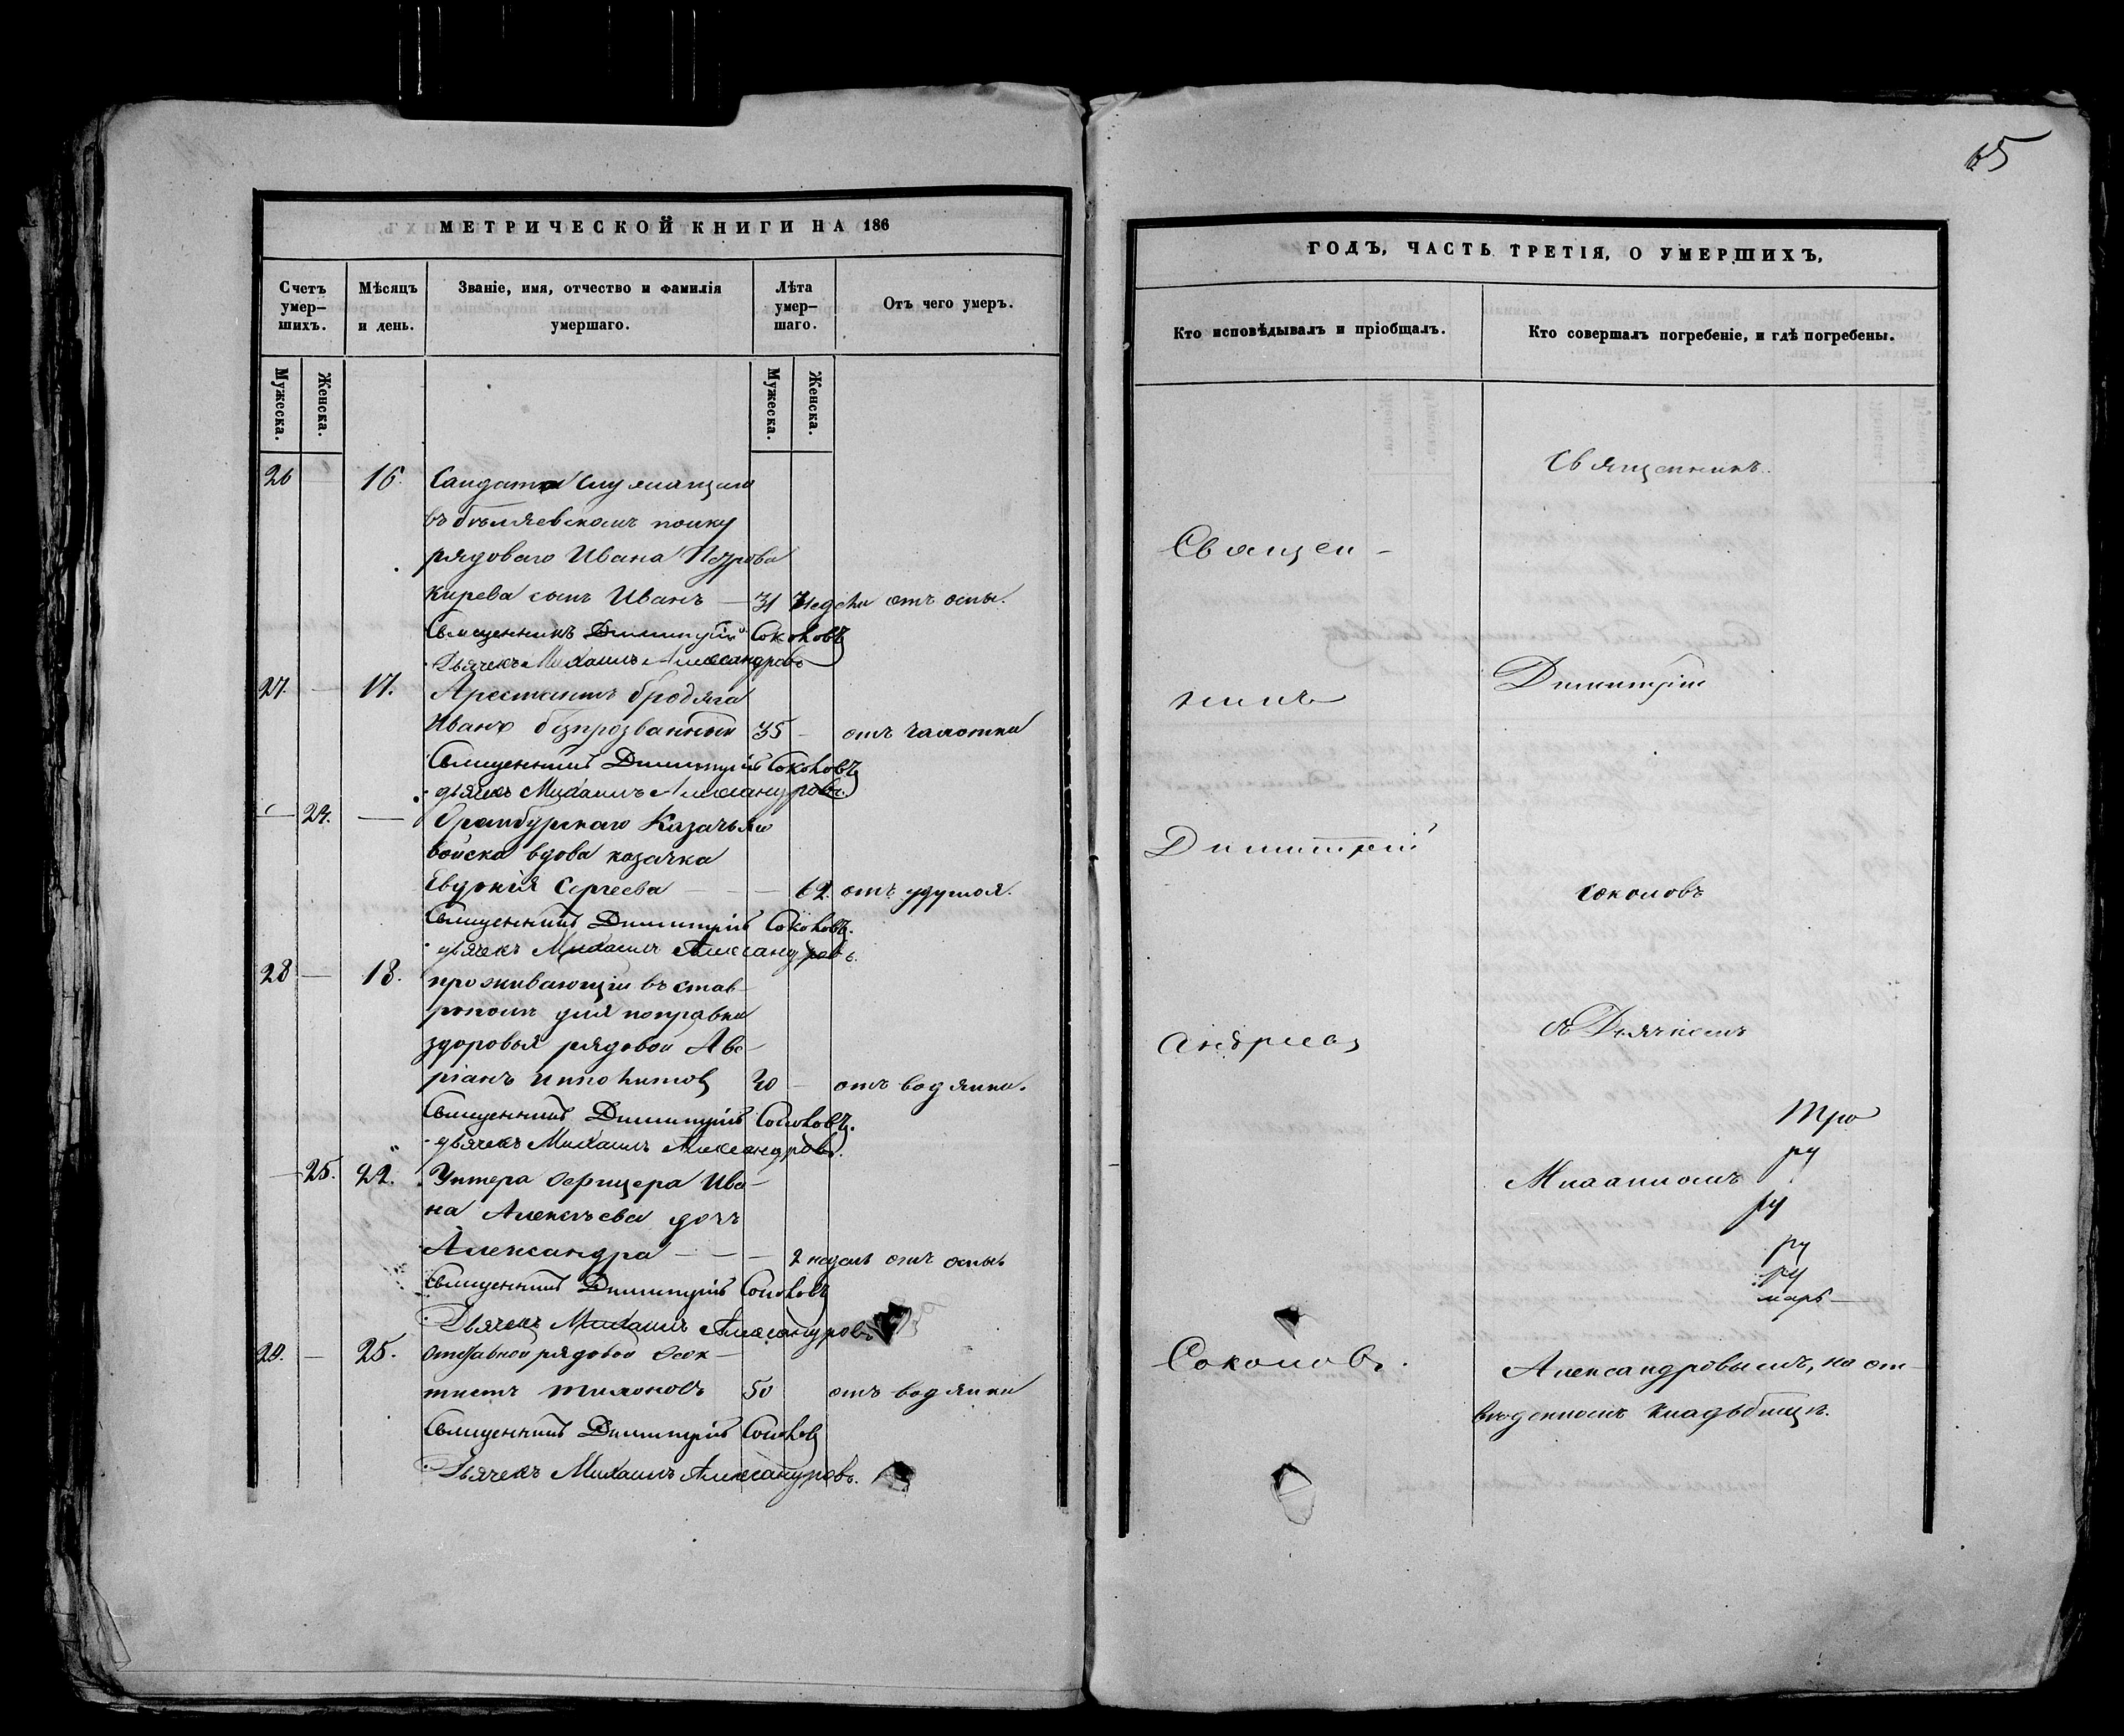 65
МЕТРИЧЕСКОЙ КНИГИ НА 186
Счетъ умер-шихъ.
Мѣсяцъ и день.
Званіе, имя, отчество и фамилія умершаго.
Лѣта умер-шаго.
Отъ чего умеръ.
Мужеска.
Женска.
Мужеска.
Женска.
26 16. Салдата служащаго
въ бѣляевскомъ полку
рядоваго Ивана Петрова
Кирева сынъ Иванъ — 3½ Недѣли отъ оспы.
Священникъ Димитрій Соколовъ
Дьячекъ Михаилъ Александровъ
27. — 17. Арестантъ бродяга
Иванъ безпрозванный 35 — отъ чахотки
Священникъ Димитрій Соколовъ
дьячекъ Михаилъ Александровъ.
— 24. — Оренбурскаго Казачьяго
войска вдова казачка
Евдокія Сергеева — — 62. отъ удушья.
Священникъ Димитрій Соколовъ.
дьячекъ Михаилъ Александровъ.
28 — 18. проживающій въ став-
рополѣ для поправки
здоровья рядовой Аве-
ріанъ Иполитовъ 30 — отъ водянки.
Священникъ Димитрій Соколовъ.
дьячекъ Михаилъ Александровъ.
— 25. 22. Унтера Офицера Ива-
на Алексѣева дочь
Александра — — 2 недѣль отъ оспы
Священникъ Димитрій Соколовъ
Дьячекъ Михаилъ Александровъ
29. — 25. отставной рядовой
50 отъ водянки
Священникъ Димитрій Соколовъ
Дьячекъ Михаилъ Александровъ.
ГОДЪ, ЧАСТЬ ТРЕТІЯ, О УМЕРШИХЪ,
Кто исповѣдывалъ и пріобщалъ.
Кто совершалъ погребеніе, и гдѣ погребены.
Священ-
никъ
Димитрій
Андреев
Соколовъ.
Священникъ
Димитрій
Соколовъ
съ Дьячкомъ
Тро
ру
Михаиломъ
ру
ру
ру
марѣ —
Александровымъ, на от-
веденномъ кладьбищѣ.